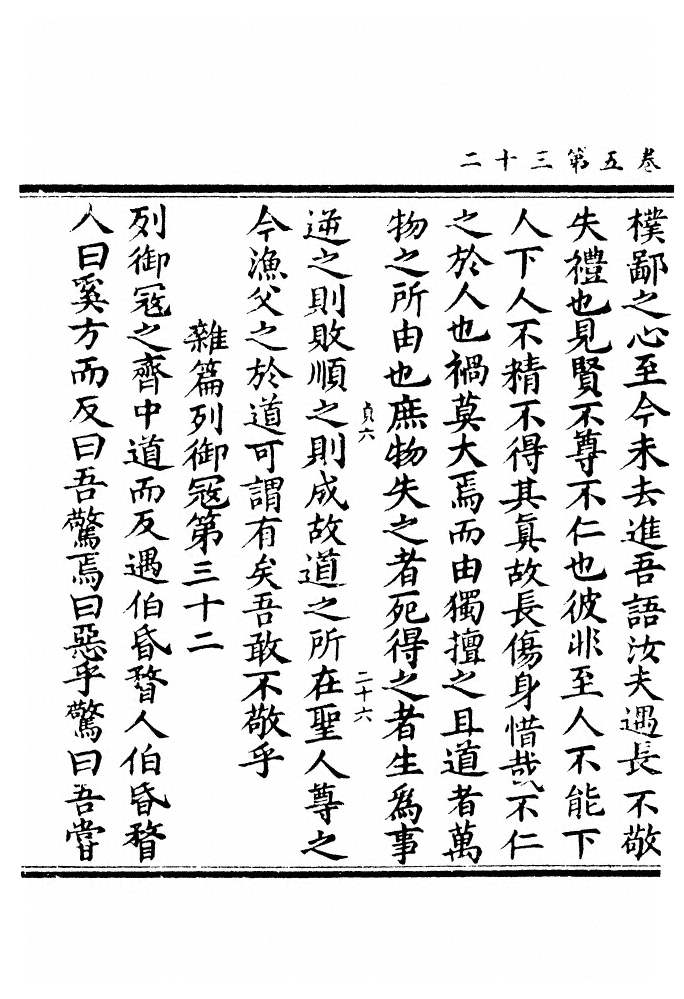 卷五第三十二
樸鄙之心至今未去進吾語汝夫遇長不敬
失禮也見賢不尊不仁也彼非至人不能下
人下人不精不得其眞故長傷身惜哉不仁
之於人也禍莫大焉而由獨擅之且道者萬
物之所由也庶物失之者死得之者生爲事
貞六
二十六
逆之則敗順之則成故道之所在聖人尊之
今漁父之於道可謂有矣吾敢不敬乎
雜篇列御冦第三十二
列御冦之齊中道而反遇伯昏瞀人伯昏瞀
人曰奚方而反曰吾驚焉曰惡乎驚曰吾嘗